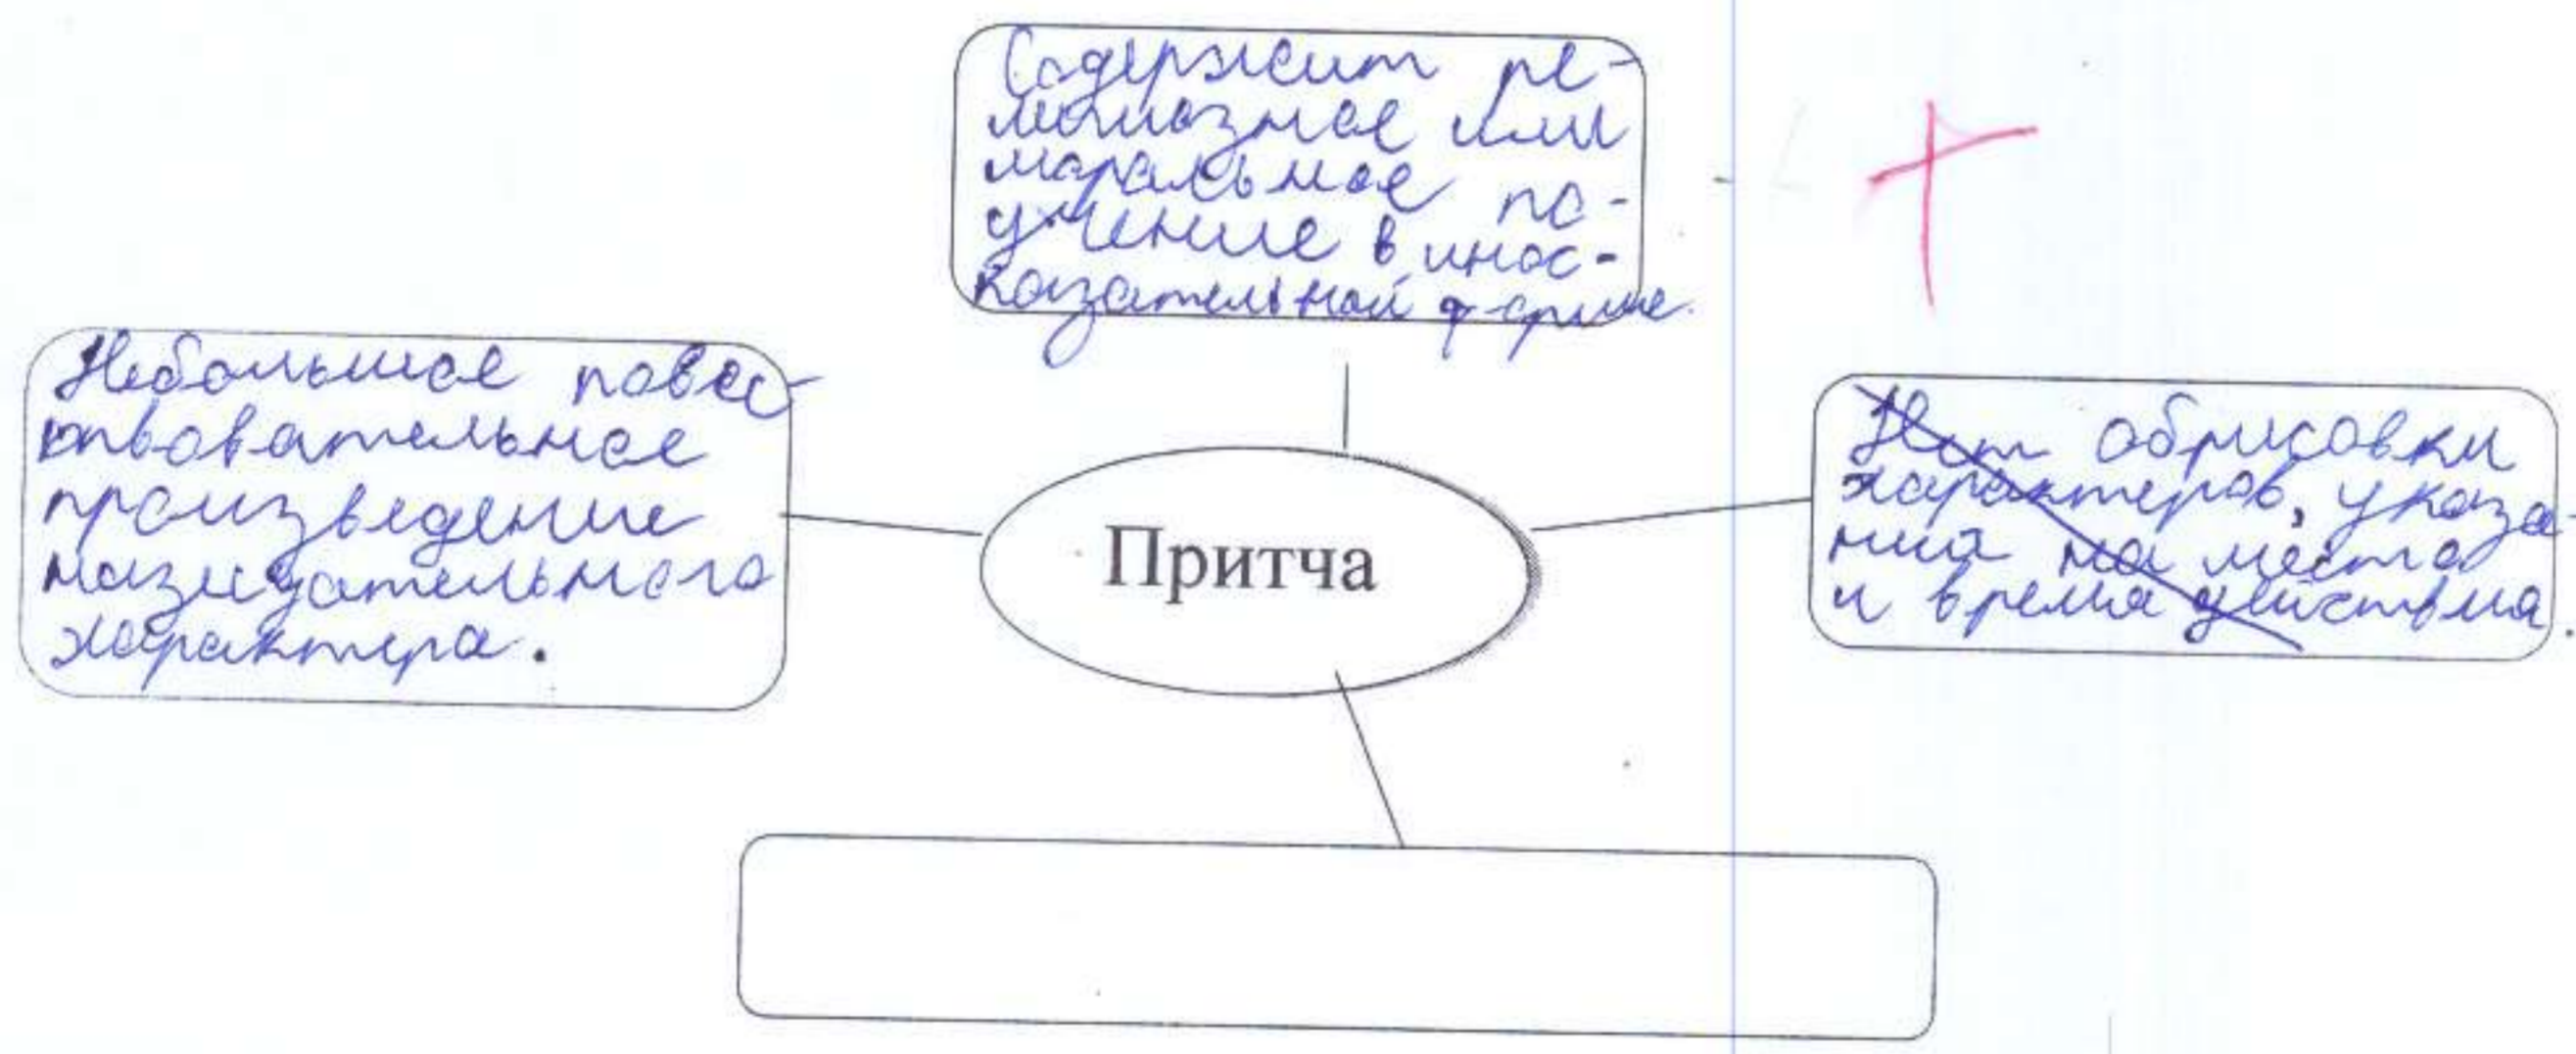 Содержит ре-
лигиозное или
моральное по-
учение в инос-
казательной форме.
Небольшое повес-
твовательное
произведение
назидательного
характера.
Притча
Нет обрисовки
характеров, указа-
ния на место
и время действия.